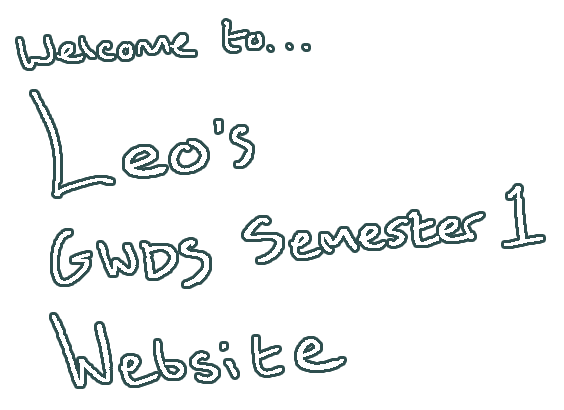 Welcome to...
Leo's
GWDS Semester 1
Website